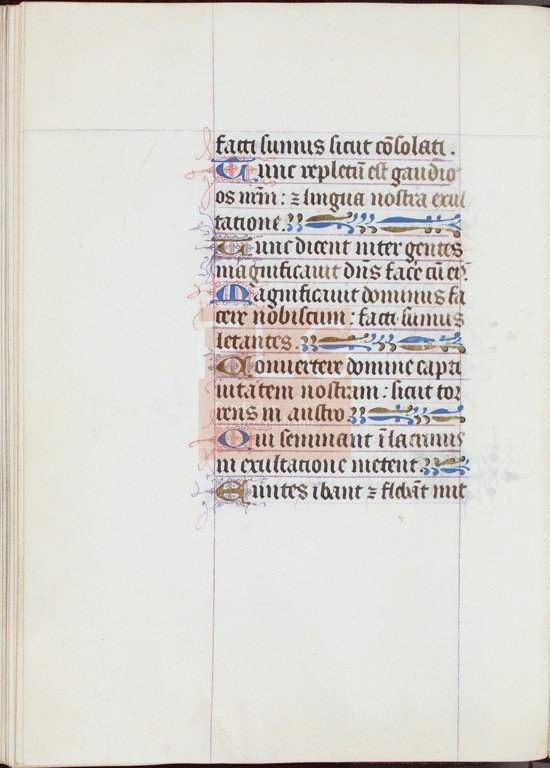 facti sumus sicut cõsolati .
Tunc repletũ est gaudio
os nr̃m : ⁊ lingua nostra exul
tatione .
Tunc dicent inter gentes
magnificauit dñs face cũ eis .
Magnificauit dominus fa
cere nobiscum : facti sumus
letantes .
Conuertere domine capti
uitatem nostram : sicut tor
rens in austro
Qui seminant ĩ lacrimis
in exultatione metent .
Euntes ibant ⁊ flebãt mit